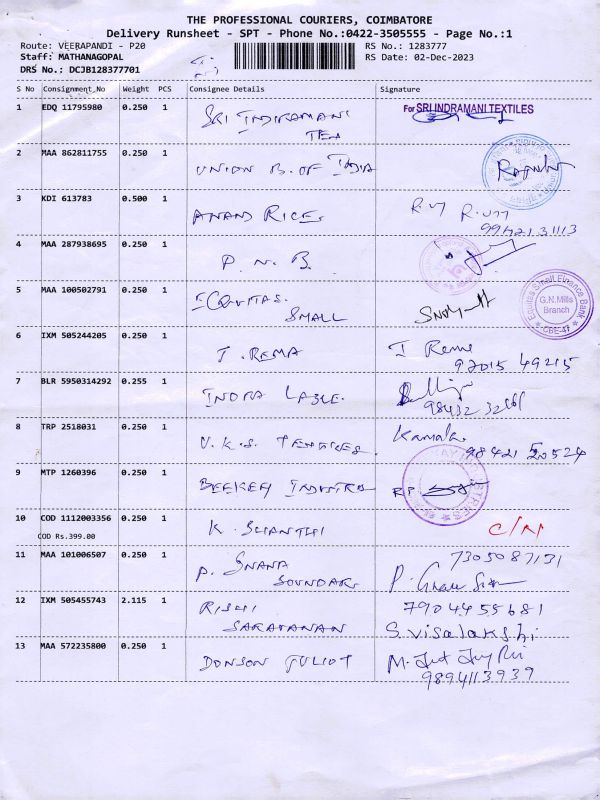 THE PROFESSIONAL COURIERS, COIMBATORE
Delivery Runsheet - SPT - Phone No.:0422-3505555 - Page No.:1
Route: VEERAPANDI - P20
RS No.: 1283777
Staff: MATHANAGOPAL
RS Date: 02-Dec-2023
DRS No.: DCJB128377701
S No Consignment_No Weight PCS Consignee Details Signature
1 EDQ 11795980 0.250 1 SRI INDIRAMANI
TEX
For SRI INDRAMANI TEXTILES
2 MAA 862811755 0.250 1 UNION B. OF INDIA
3 KDI 613783 0.500 1 ANAND RICE.
99421 31113
4 MAA 287938695 0.250 1 P. N. B.
5 MAA 100502791 0.250 1 EQUITAS.
SMALL
Equitas Small Finance Bank
G.N.Mills
Branch
CBE-47
6 IXM 505244205 0.250 1 T. REMA
92015 49215
7 BLR 5950314292 0.255 1 INDRA
8 TRP 2518031 0.250 1 V.K.S.
Kamala
98421 50524
9 MTP 1260396 0.250 1
10 COD 1112003356 0.250 1 K. SHANTHI
COD Rs.399.00
11 MAA 101006507 0.250 1 P. GNANA
SOUNDARI
7305087131
12 IXM 505455743 2.115 1 RISHI
SARAVANAN
7904455681
S. Visalakshi
13 MAA 572235800 0.250 1 DONSON
9894113939